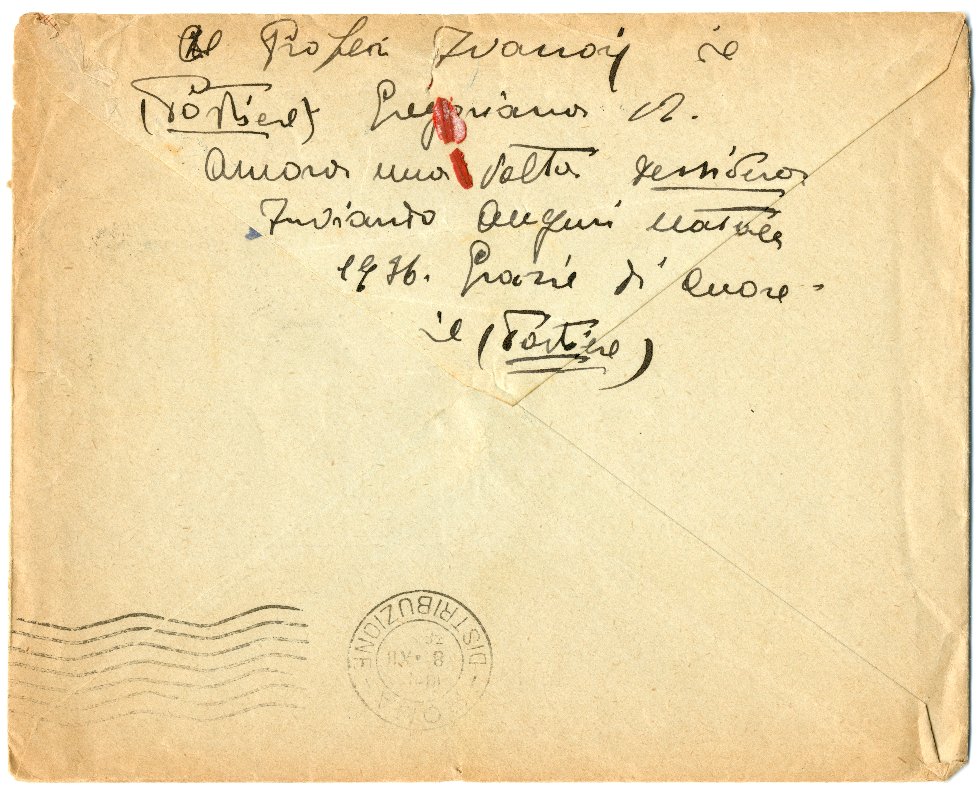 Al Profess Ivanov il
(Portiere) Gregoriana 12.
Ancora una volta
Inviando Auguri Natale
1936. Grazie di cuore-
il (Portiere)
DISTRIBUZIONE
8 • XII